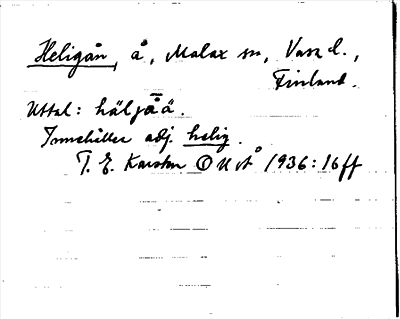 Heligån, å, Malax sn, Vasa l.,
Finland.
Uttal: häljåä.
Innehåller adj. helig.
T. E. Karsten OUÅ 1936: 16 ff